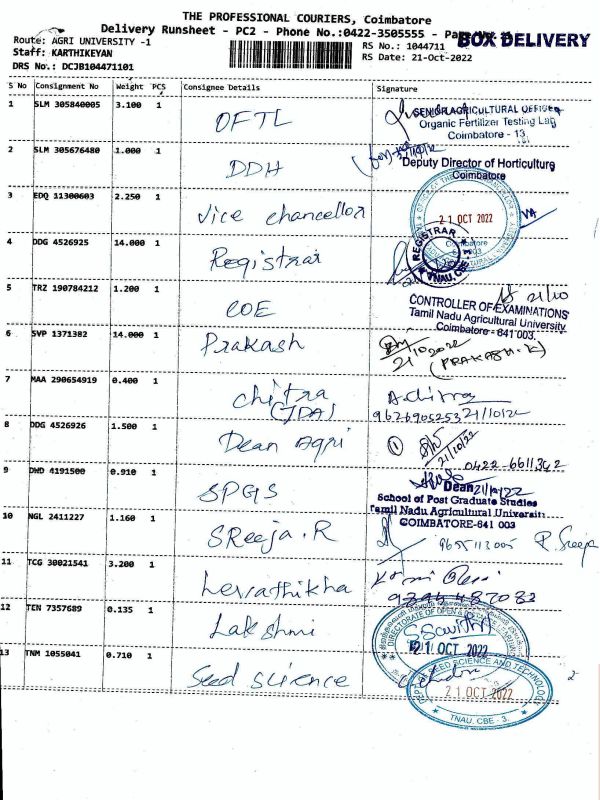 THE PROFESSIONAL COURIERS, Coimbatore
Delivery Runsheet - PC2 - Phone No.:0422-3505555 -
BOX DELIVERY
Route: AGRI UNIVERSITY -1
RS No.: 1044711
Staff: KARTHIKEYAN
RS Date: 21-Oct-2022
DRS No.: DCJB104471101
S No Consignment No Weight PCS Consignee Details Signature
1 SLM 305840005 3.100 1 OFTL
SENIOR AGRICULTURAL OFFICER
Organic Fertilizer Testing Lab
Coimbatore - 13
2 SLM 305676480 1.000 1 DDH
Deputy Director of Horticulture
Coimbatore
3 EDQ 11300603 2.250 1 Vice chancellor
21 OCT 2022
4 DDG 4526925 14.000 1 Registrar
REGISTRAR
TNAU. CBE - 3
Coimbatore
5 TRZ 190784212 1.200 1 COE
21/10
CONTROLLER OF EXAMINATIONS
Tamil Nadu Agricultural University
Coimbatore - 641 003.
6 SVP 1371382 14.000 1 Prakash
21/10/2022
(PRAKASH.K)
7 MAA 290654919 0.400 1 chitra
(JDA)
9626905253 21/10/22
8 DDG 4526926 1.500 1 Dean Agri
1
21/10/22
0422-6611342
9 DWD 4191500 0.910 1 SPGS
Dean 21/10/22
School of Post Graduate Studies
Tamil Nadu Agricultural University
COIMBATORE-641 003
10 NGL 2411227 1.160 1 SReeja.R
9655113005 R. Sreeja
11 TCG 30021541 3.200 1
12 TEN 7357689 0.135 1 Lakshmi
DIRECTORATE OF OPEN &
21 OCT 2022
13 TNM 1055041 0.710 1 Seed science
SEED SCIENCE AND TECHNOLOGY
21 OCT 2022
TNAU. CBE - 3.